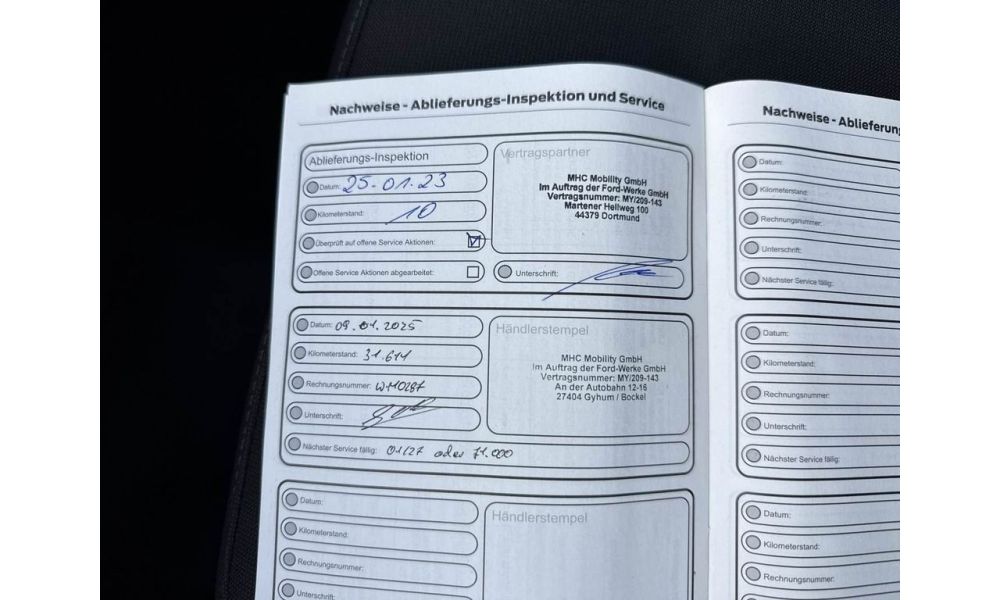 Nachweise - Ablieferungs-Inspektion und Service
Ablieferungs-Inspektion
Datum: 25.01.23
Kilometerstand: 10
Überprüft auf offene Service Aktionen:
Offene Service Aktionen abgearbeitet:
Vertragspartner
MHC Mobility GmbH
Im Auftrag der Ford-Werke GmbH
Vertragsnummer: MY/209-143
Martener Hellweg 100
44379 Dortmund
Unterschrift:
Datum: 09.01.2025
Kilometerstand: 31.611
Rechnungsnummer: WM0287
Unterschrift:
Händlerstempel
MHC Mobility GmbH
Im Auftrag der Ford-Werke GmbH
Vertragsnummer: MY/209-143
An der Autobahn 12-16
27404 Gyhum / Bockel
Nächster Service fällig: 01/27 oder 71.000
Datum:
Kilometerstand:
Rechnungsnummer:
Unterschrift:
Händlerstempel
Nachweise - Ablieferung
Datum:
Kilometerstand:
Rechnungsnummer:
Unterschrift:
Nächster Service fällig:
Datum:
Kilometerstand:
Rechnungsnummer:
Unterschrift:
Nächster Service fällig:
Datum:
Kilometerstand:
Rechnungsnummer: